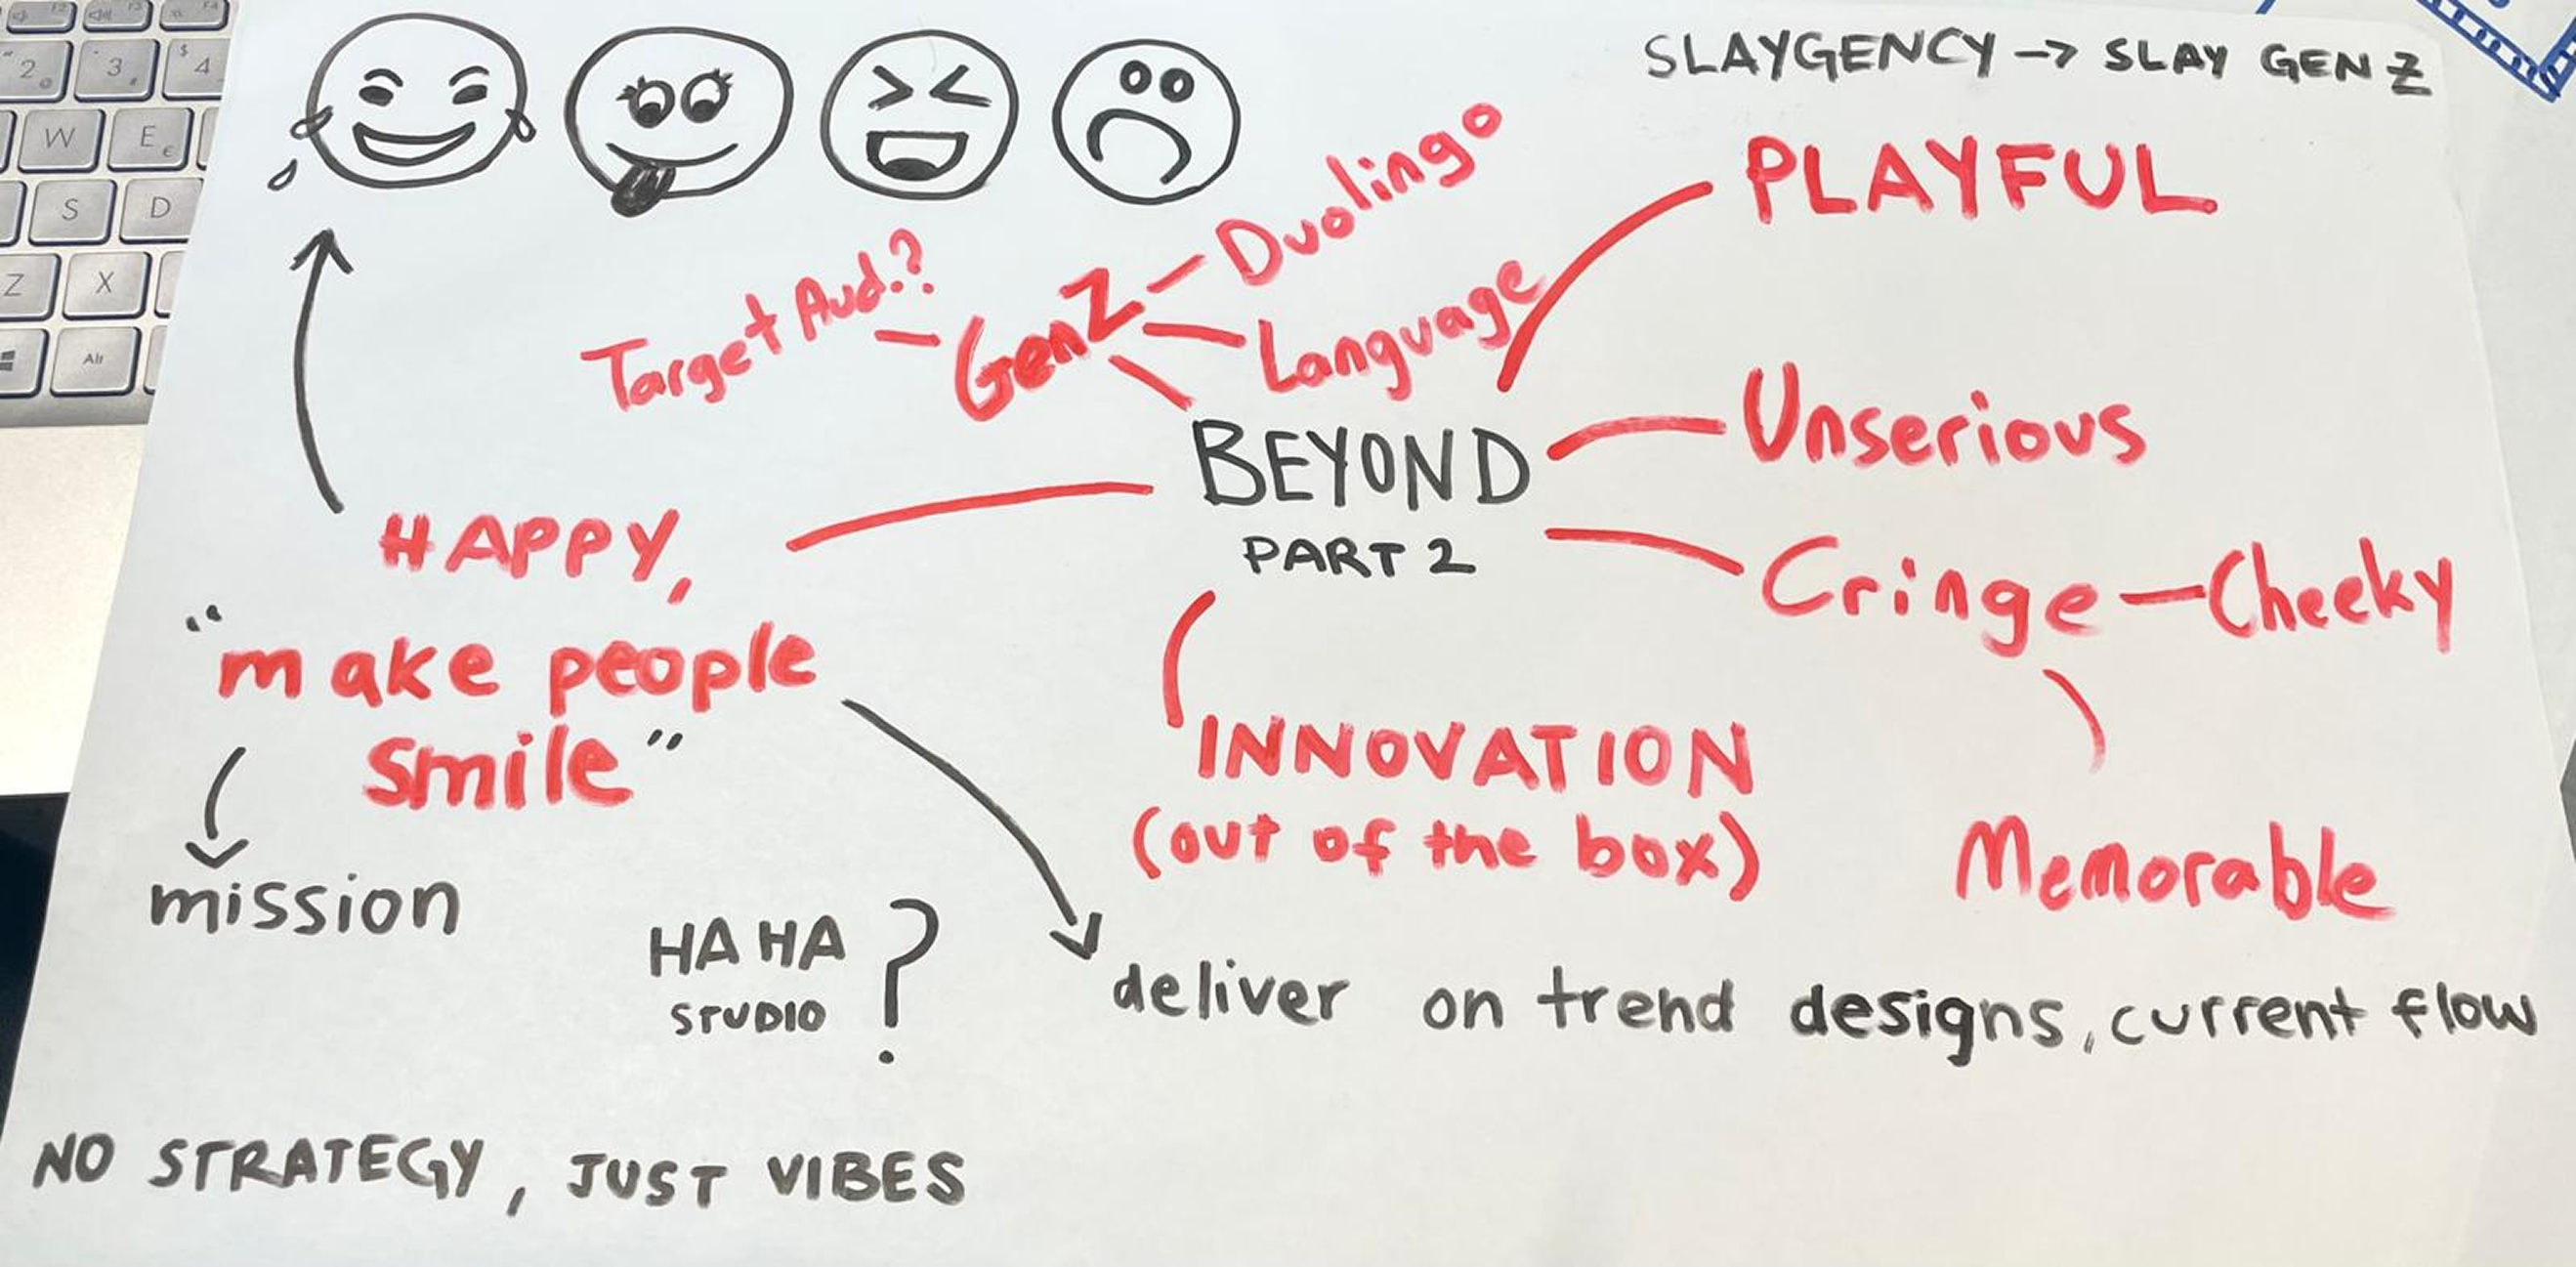 SLAYGENCY -> SLAY GEN Z
PLAYFUL
Duolingo
Target Aud.?
Gen Z
Language
BEYOND
PART 2
Unserious
Cringe - Cheeky
Memorable
HAPPY,
"make people
smile"
mission
INNOVATION
(out of the box)
HA HA
STUDIO
?
deliver on trend designs, current flow
NO STRATEGY, JUST VIBES
2
3
$
4
W
E
€
S
D
Z
X
Alt